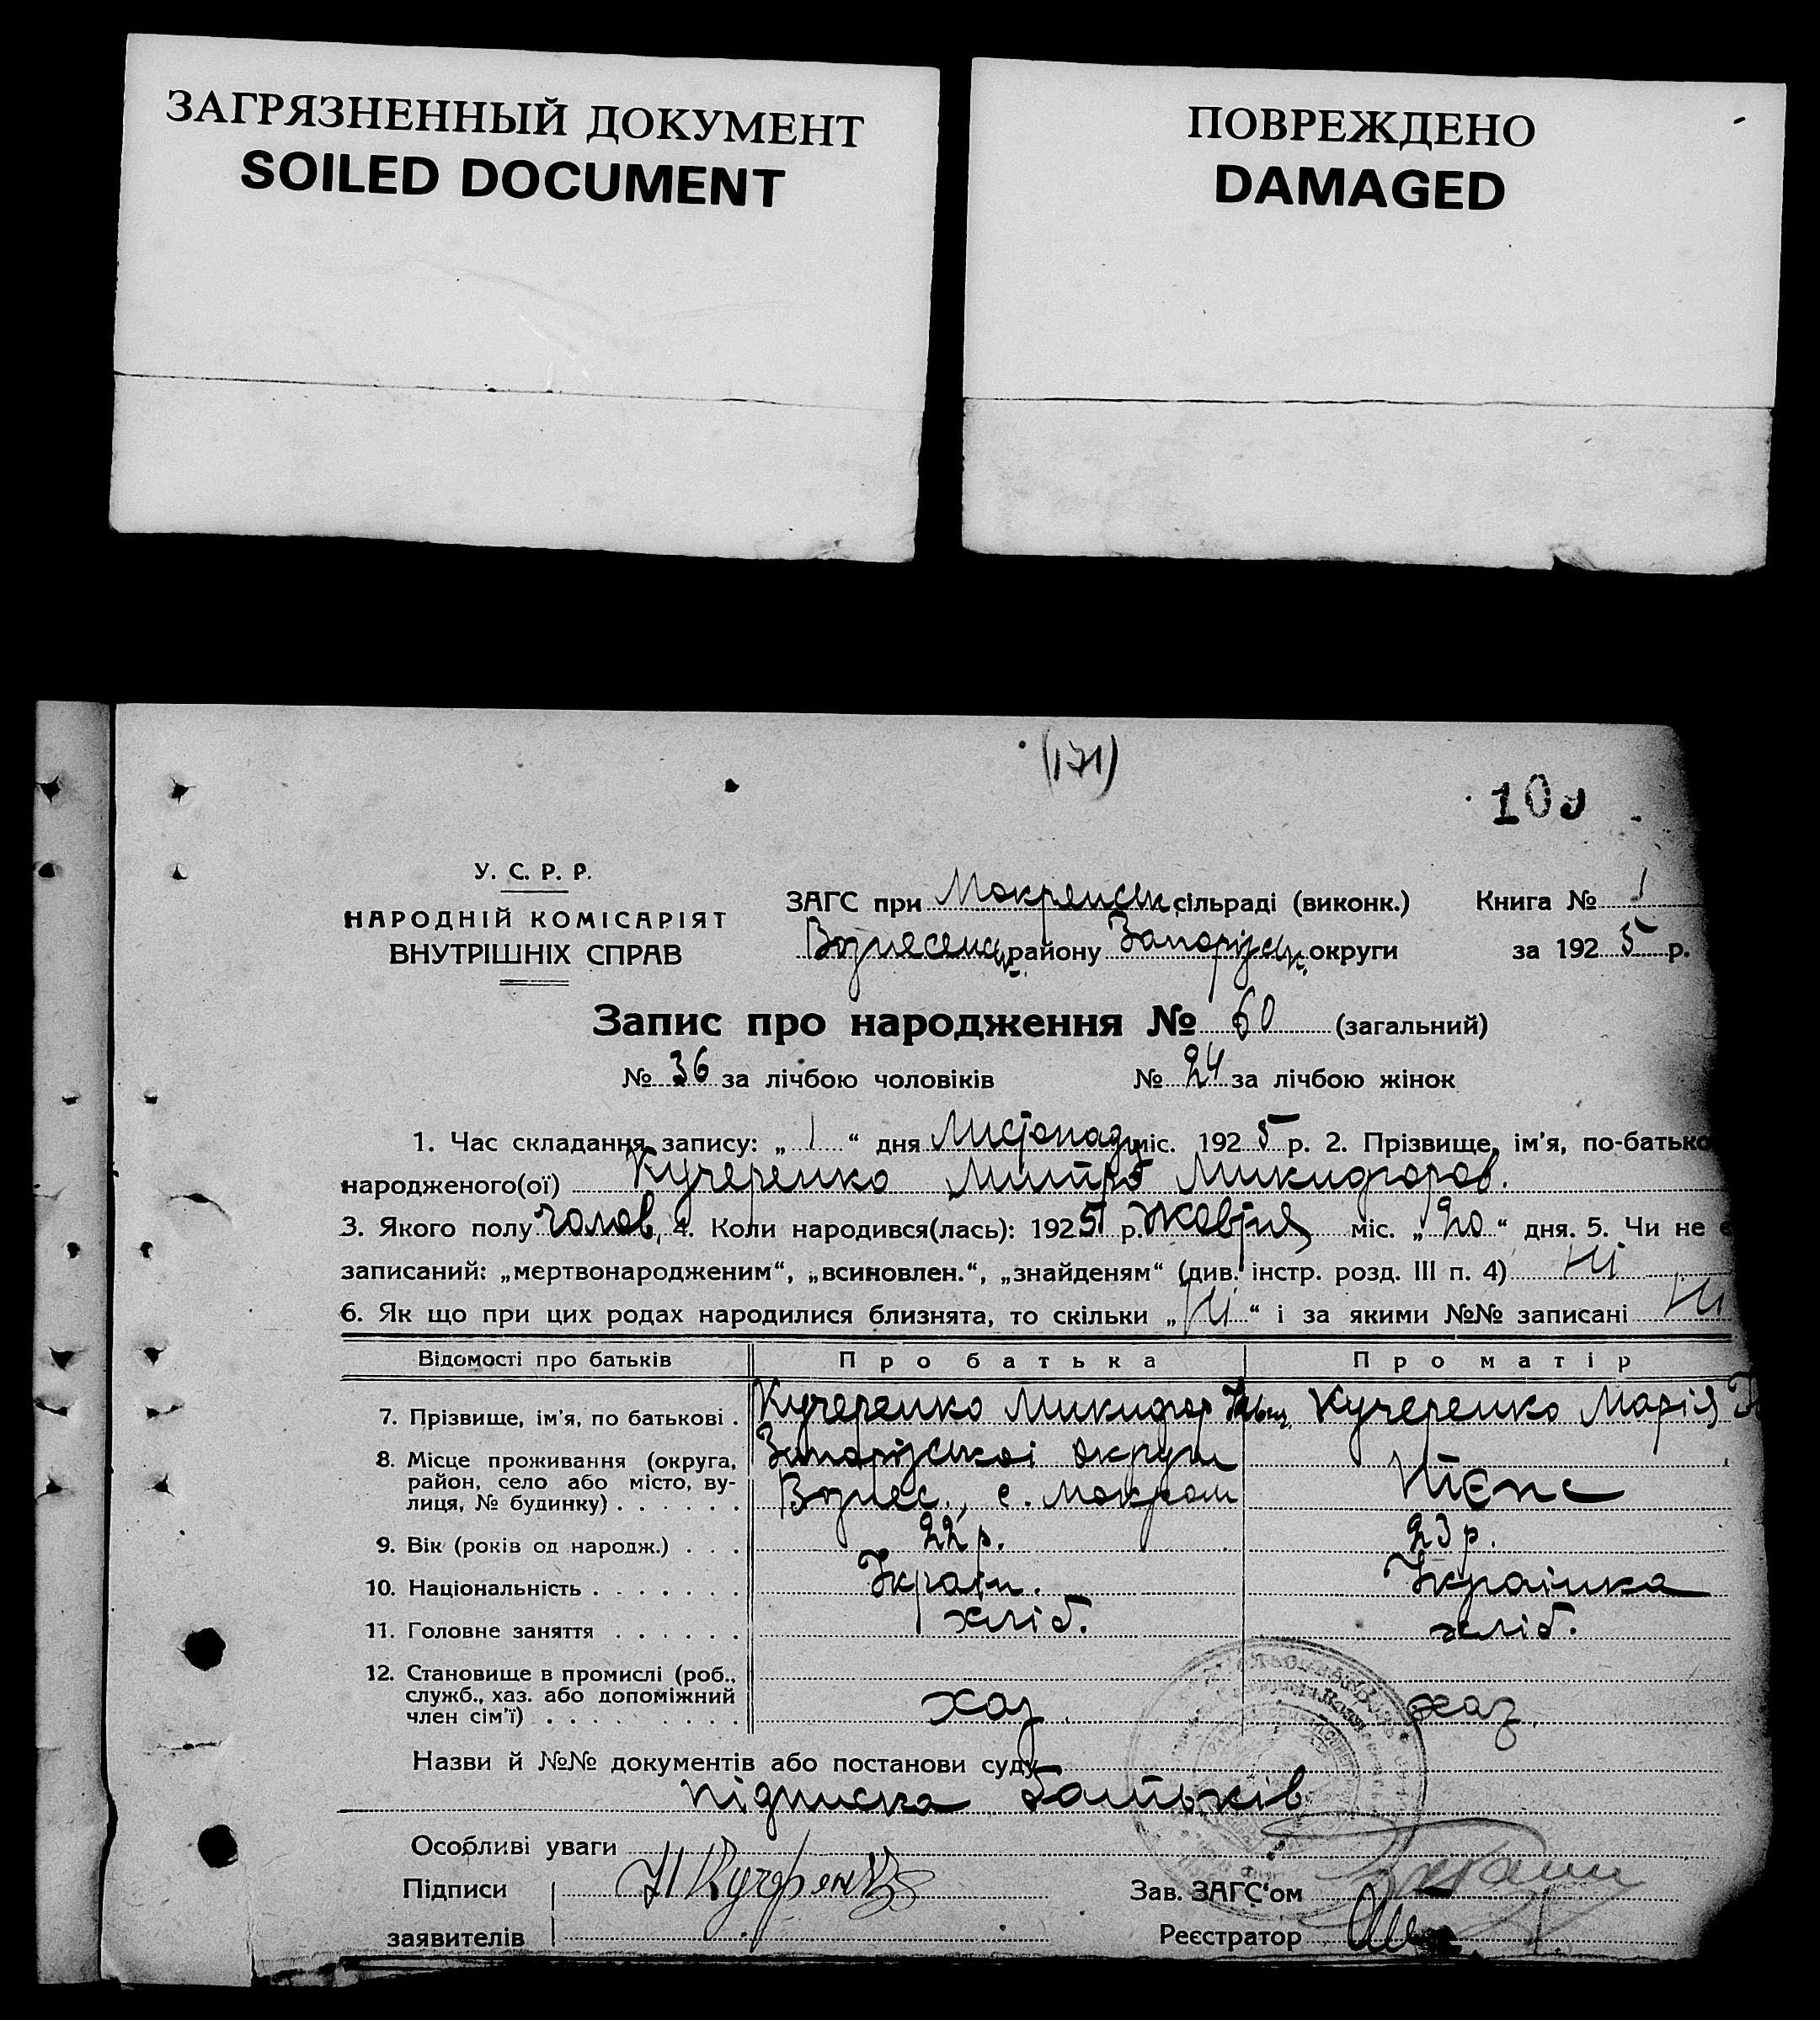 ЗАГРЯЗНЕННЫЙ ДОКУМЕНТ
SOILED DOCUMENT
ПОВРЕЖДЕНО
DAMAGED
(171)
У. С. Р. Р.
НАРОДНІЙ КОМІСАРІЯТ
ВНУТРІШНІХ СПРАВ
ЗАГС при Мокрянськ сільраді (виконк.) Книга № 1
Вознесенськ району Запоріжськ. округи за 1925 р.
Запис про народження № 60 (загальний)
№ 36 за лічбою чоловіків № 24 за лічбою жінок
1. Час складання запису: „ 1 “ дня Листопаду міс. 1925 р. 2. Прізвище, ім'я, по-батько
народженого(ої) Кучеренко Митро Микифоров.
3. Якого полу чолов. 4. Коли народився(лась): 1925 р. Жовтня міс. „ 20 “ дня. 5. Чи не є
записаний: „мертвонародженим“, „всиновлен.“, „знайденям“ (див. інстр. розд. III п. 4) Ні
6. Як що при цих родах народилися близнята, то скільки „ Ні “ і за якими №№ записані Ні
Відомості про батьків Про батька Про матір
7. Прізвище, ім'я, по батькові . Кучеренко Микифор Кучеренко Марія
8. Місце проживання (округа, Запоріжської округи
район, село або місто, ву-
лиця, № будинку) . . . . . . Вознес., с. Мокром
9. Вік (років од народж.) . . . 22 р. 23 р.
10. Національність . . . . . . . Україн. Українка
11. Головне заняття . . . . . . хліб. хліб.
12. Становище в промислі (роб.,
служб., хаз. або допоміжний
член сім'ї) . . . . . . . . . хаз. хаз.
Назви й №№ документів або постанови суду
підписка батьків
Особливі уваги
Підписи Н Кучеренко Зав. ЗАГС'ом
заявителів Реєстратор